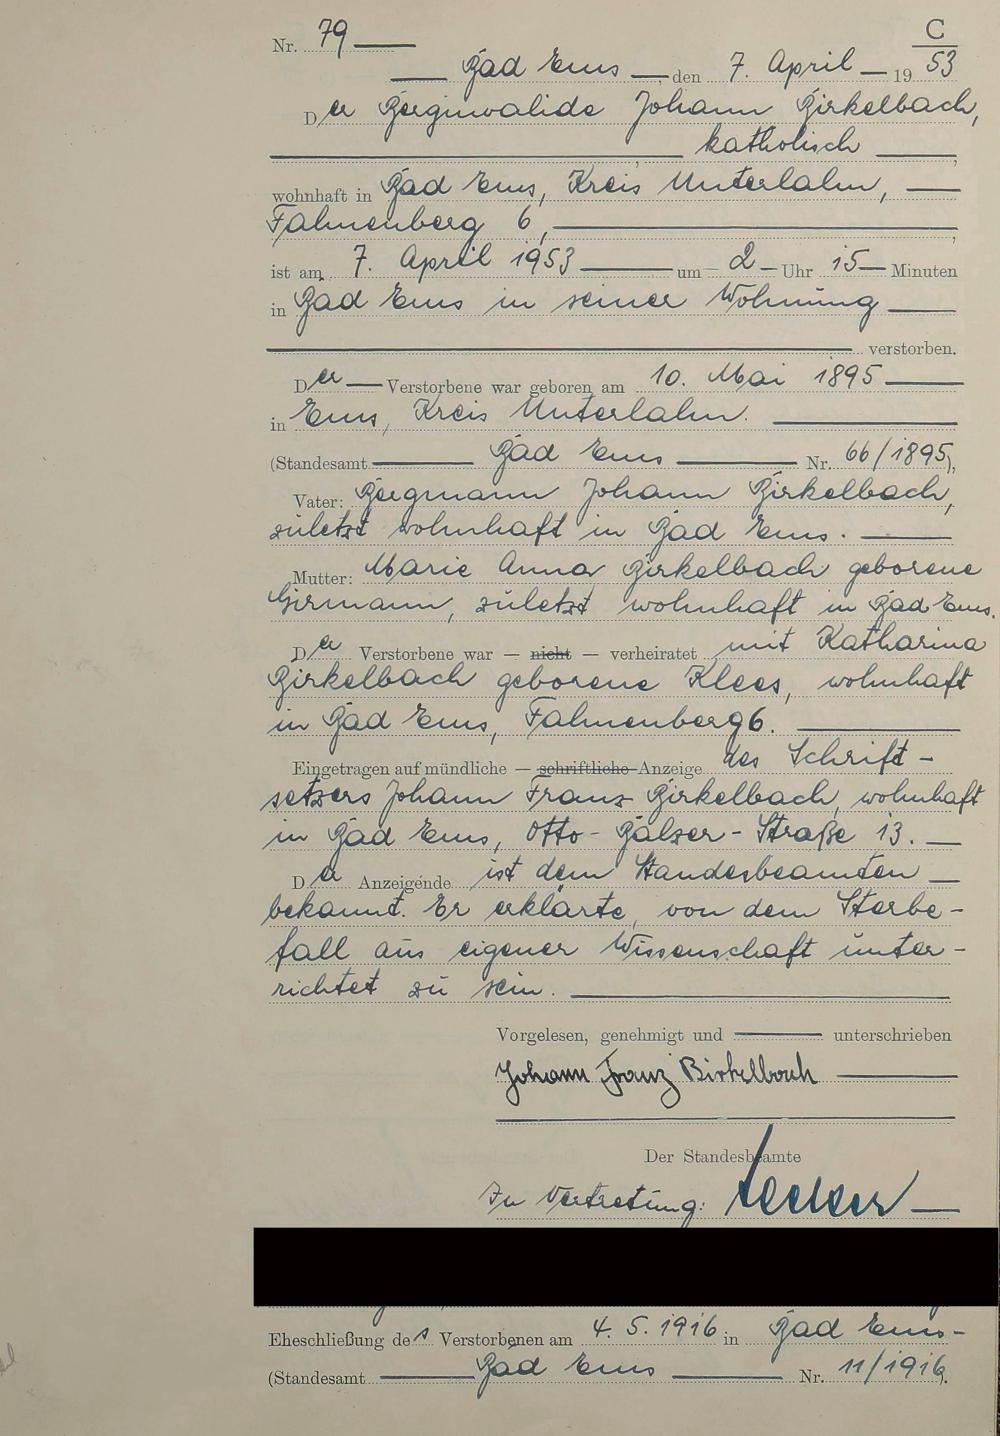 C
Nr. 79
Bad Ems den 7. April 19 53
Der Berginvalide Johann Birkelbach,
katholisch
wohnhaft in Bad Ems, Kreis Unterlahn,
Fahnenberg 6,
ist am 7. April 1953 um 2 Uhr 15 Minuten
in Bad Ems in seiner Wohnung
verstorben.
Der Verstorbene war geboren am 10. Mai 1895
in Ems, Kreis Unterlahn.
(Standesamt Bad Ems Nr. 66/1895),
Vater: Bergmann Johann Birkelbach,
zuletzt wohnhaft in Bad Ems.
Mutter: Marie Anna Birkelbach geborene
Girmann, zuletzt wohnhaft in Bad Ems.
Der Verstorbene war — nicht — verheiratet mit Katharina
Birkelbach geborene Klees, wohnhaft
in Bad Ems, Fahnenberg 6.
Eingetragen auf mündliche — schriftliche Anzeige des Schrift-
setzers Johann Franz Birkelbach, wohnhaft
in Bad Ems, Otto-Balzer-Straße 13.
Der Anzeigende ist dem Standesbeamten
bekannt. Er erklärte, von dem Sterbe-
fall aus eigener Wissenschaft unter-
richtet zu sein.
Vorgelesen, genehmigt und unterschrieben
Johann Franz Birkelbach
Der Standesbeamte
In Vertretung:
Eheschließung des Verstorbenen am 4. 5. 1916 in Bad Ems
(Standesamt Bad Ems Nr. 11/1916).